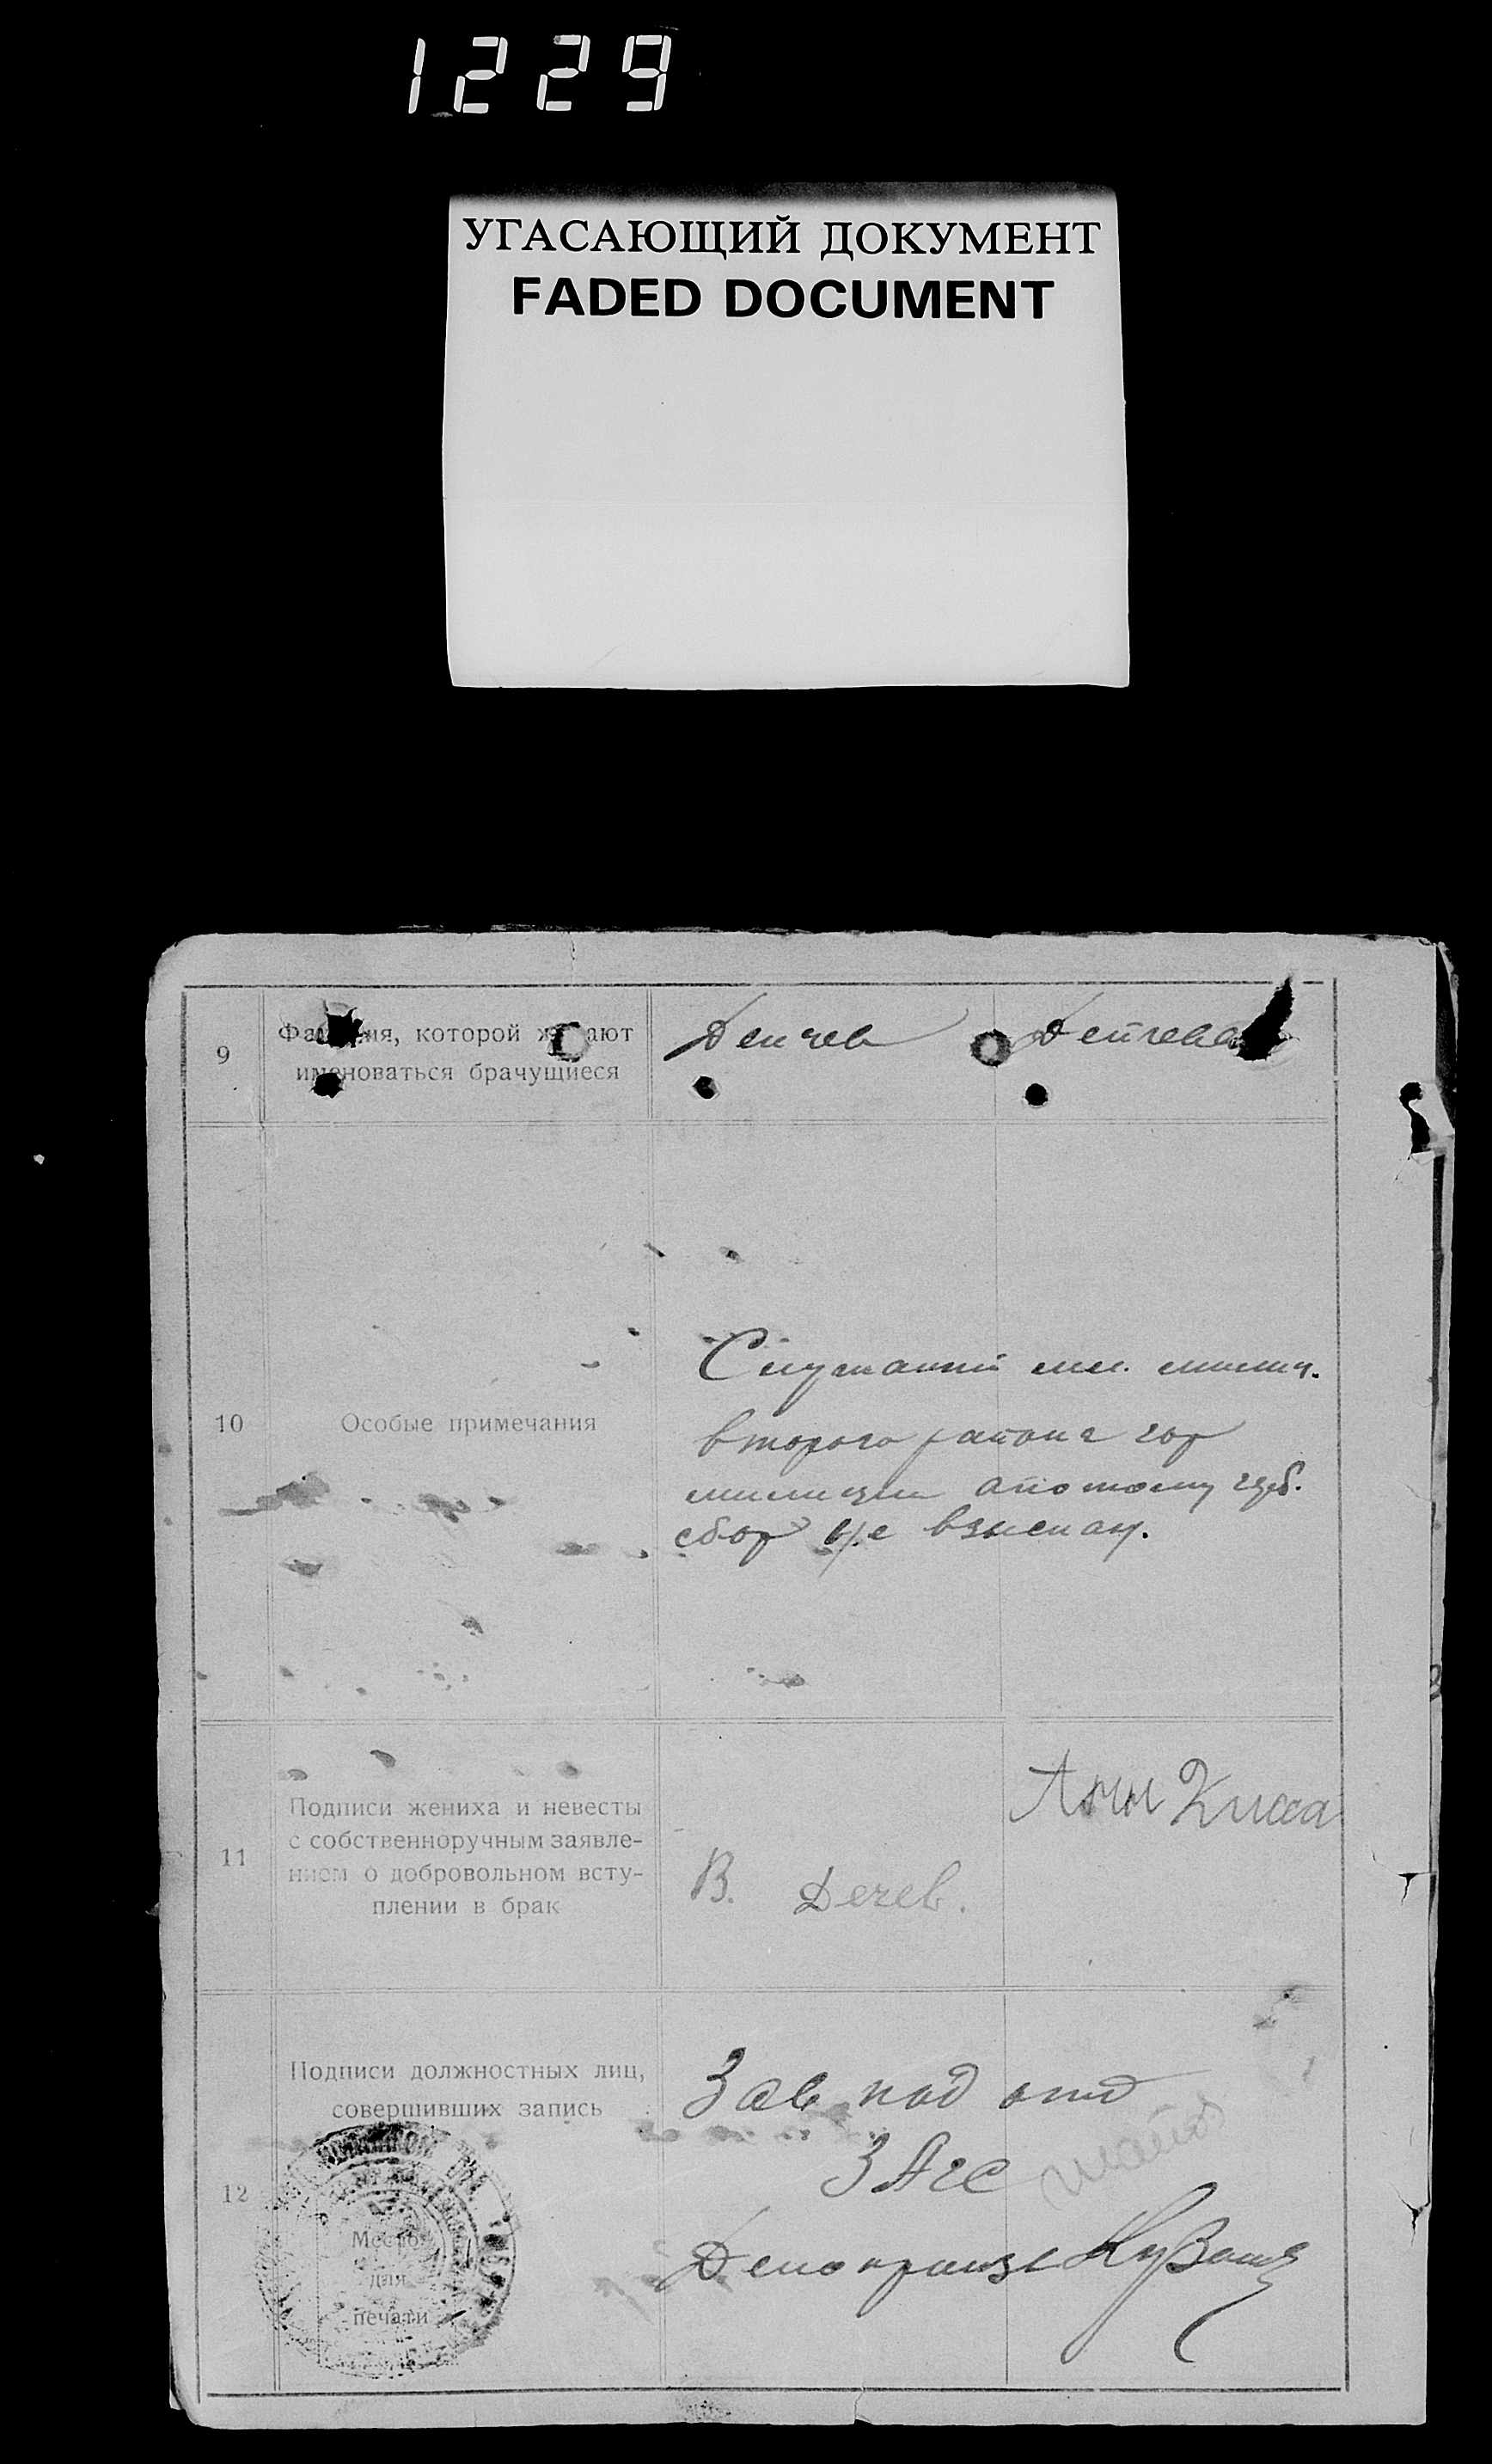 1229
УГАСАЮЩИЙ ДОКУМЕНТ
FADED DOCUMENT
9
Фамилия, которой желают
именоваться брачущиеся
Дейчев
Дейчева
10
Особые примечания
Служащий мл. милиц.
второго района гор
милиции а потому гер.
сбор не взыскан.
11
Подписи жениха и невесты
с собственноручным заявле-
нием о добровольном всту-
плении в брак
В. Дечев.
12
Подписи должностных лиц,
совершивших запись
Место
для
печати
Зав под отд
ЗАГС
Делопроизв